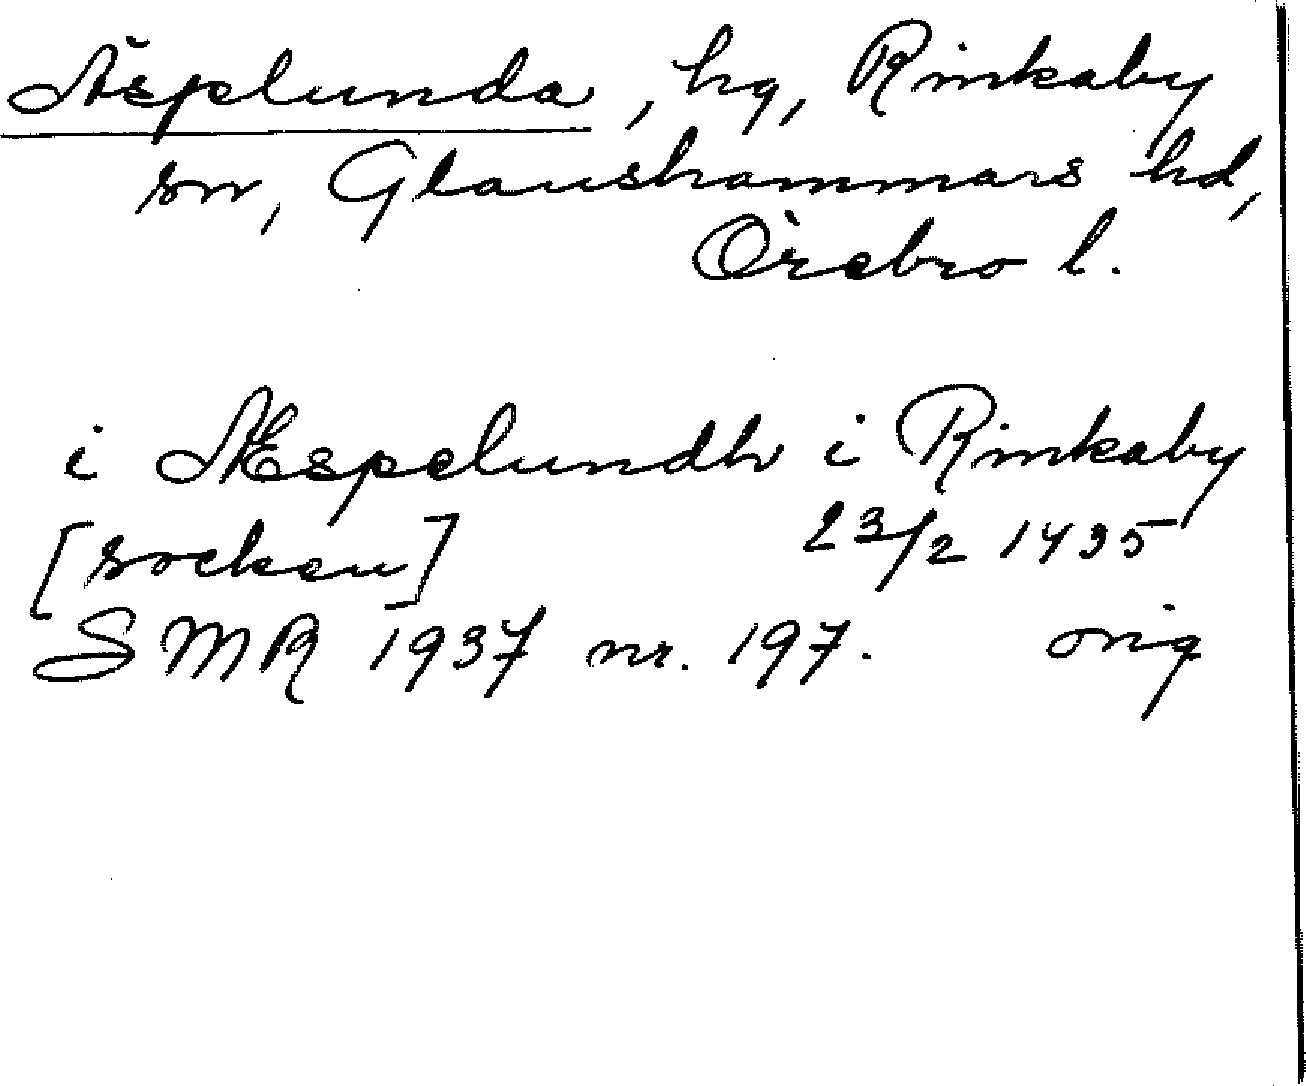 Äsplunda, hg, Rinkaby
sn, Glanshammars hd,
Örebro l.
i Æspelundh i Rinkaby
[socken] 23/2 1435
SMR 1937 nr. 197. orig